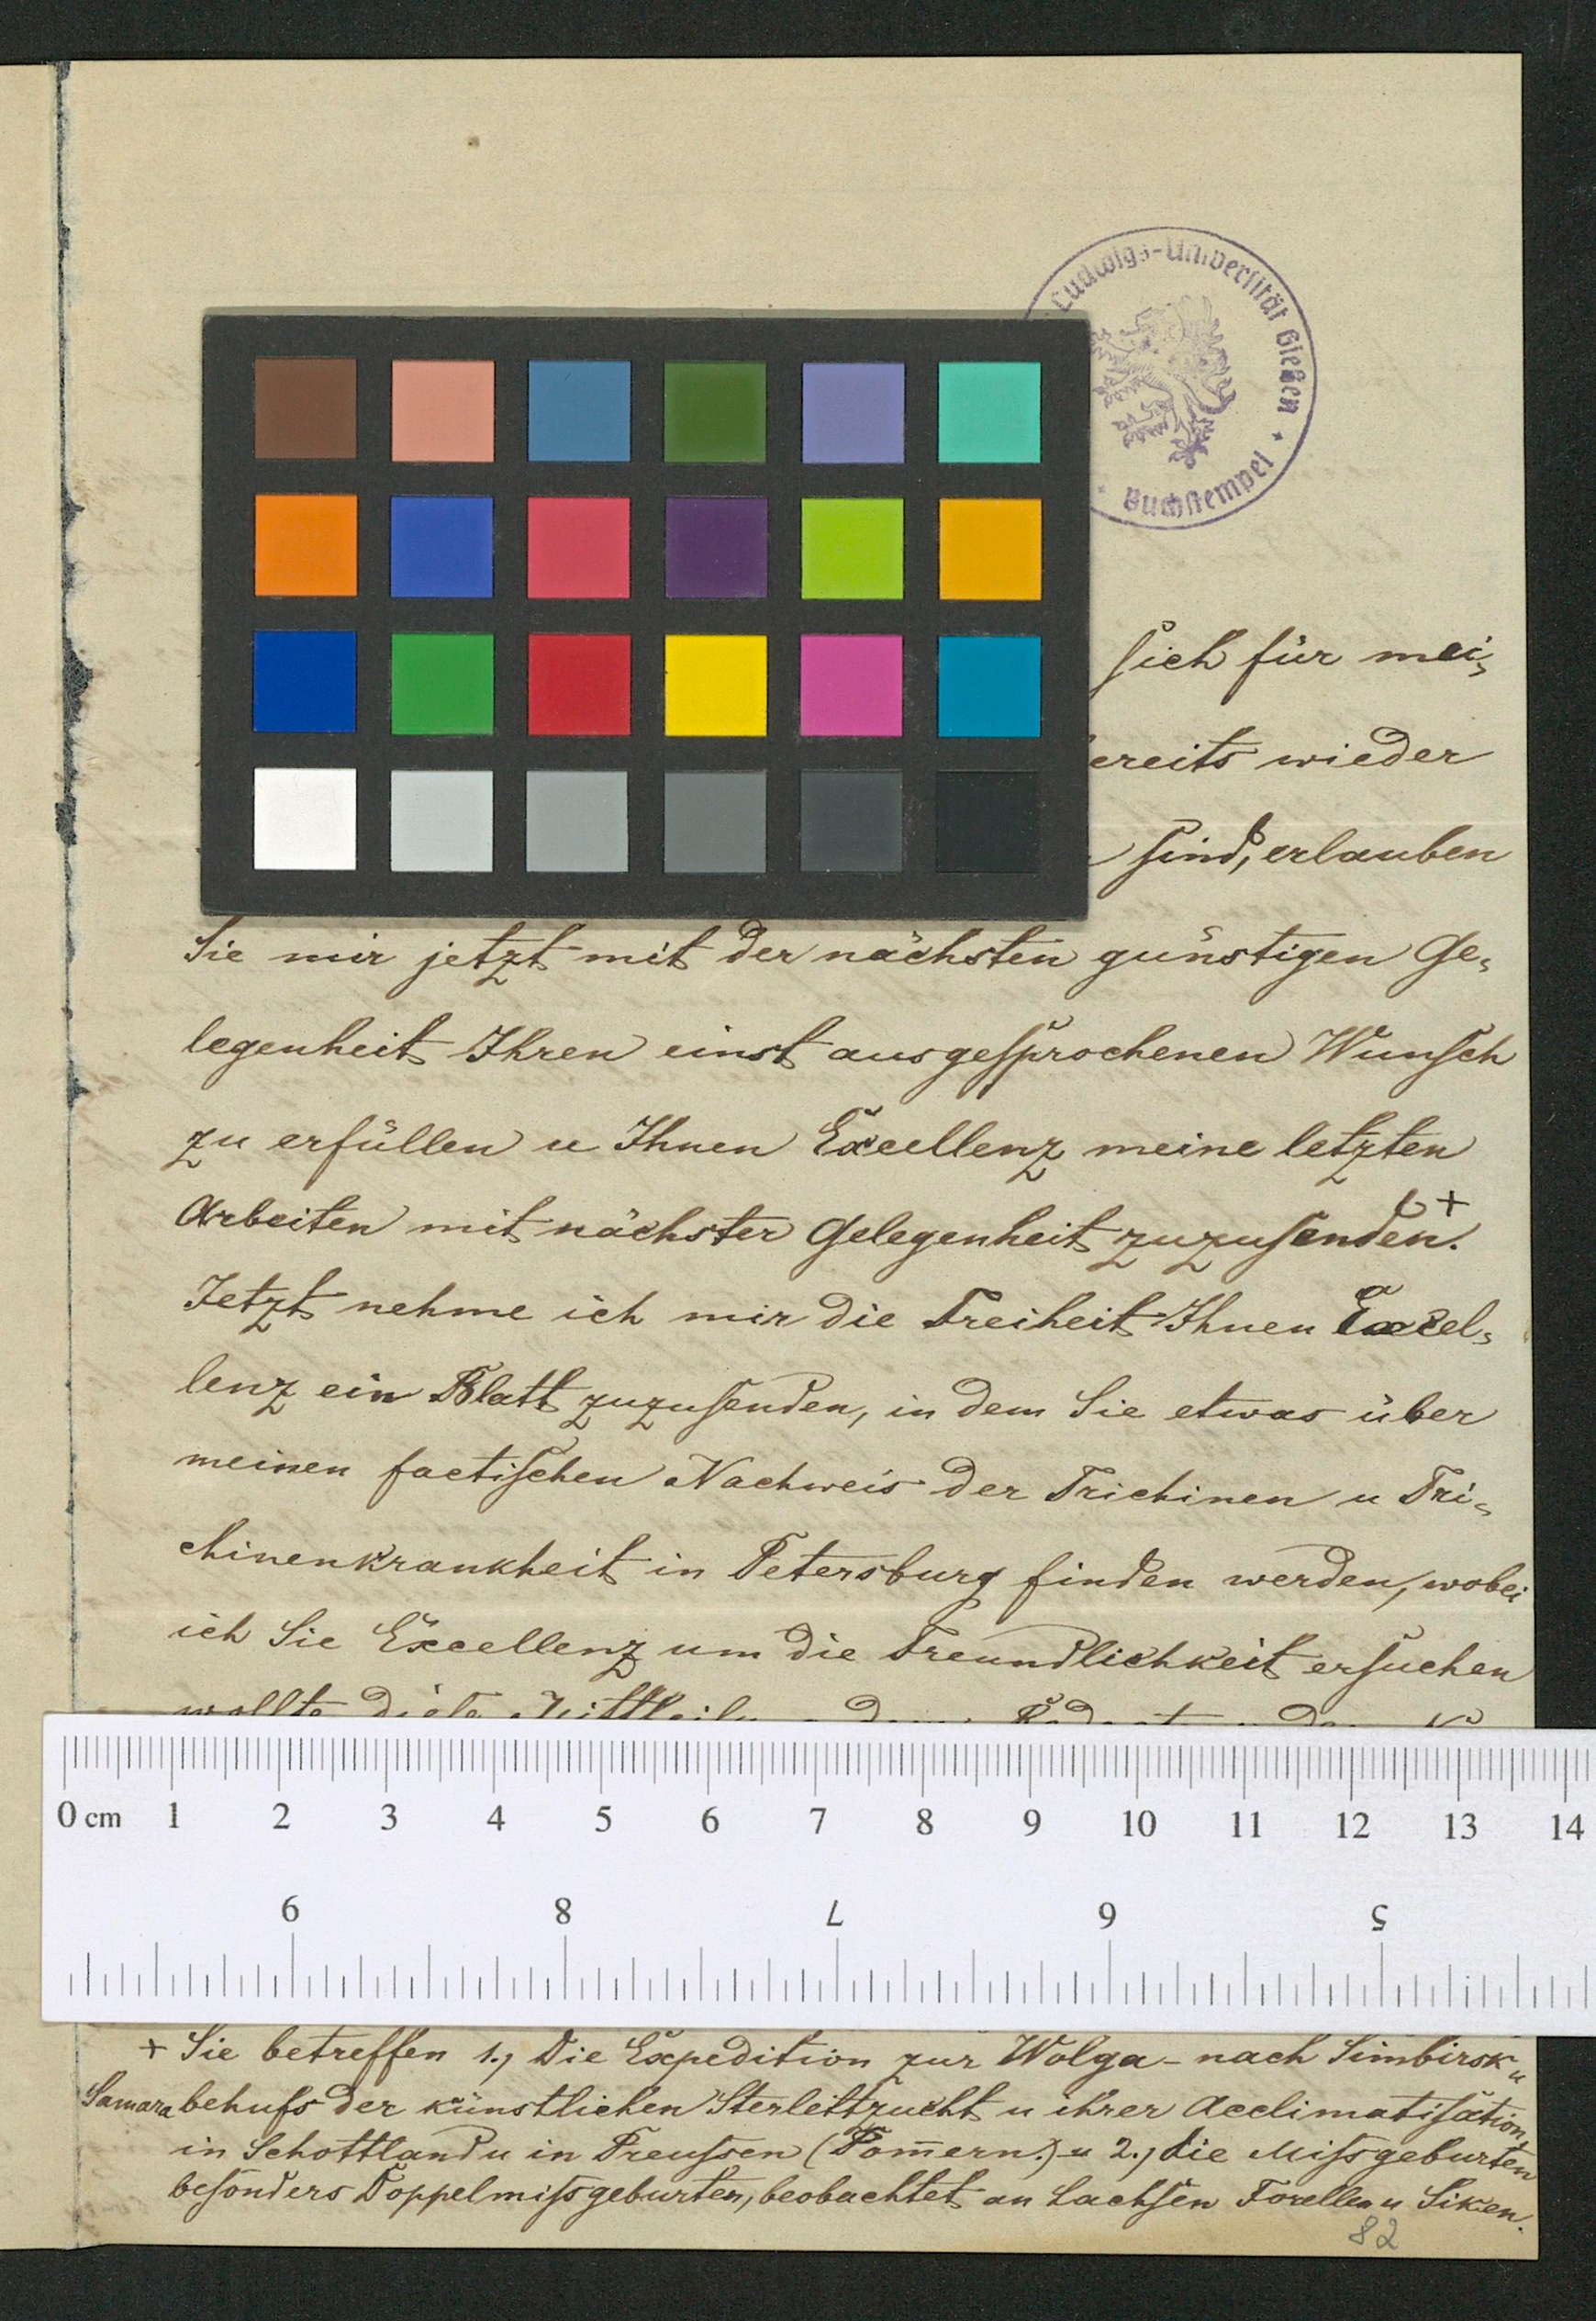 Ludwigs-Universität Gießen
Buchstempel
sich für mei-
ereits wieder
sind, erlauben
Sie mir jetzt mit der nächsten günstigen Ge-
legenheit Ihren einst ausgesprochenen Wunsch
zu erfüllen u Ihnen Excellenz meine letzten
Arbeiten mit nächster Gelegenheit zuzusenden.+
Jetzt nehme ich mir die Freiheit Ihnen Excel-
lenz ein Blatt zuzusenden, in dem Sie etwas über
meinen factischen Nachweis der Trichinen u Tri-
chinenkrankheit in Petersburg finden werden, wobei
ich Sie Excellenz um die Freundlichkeit ersuchen
wollte diese
0 cm 1 2 3 4 5 6 7 8 9 10 11 12 13 14
9 8 7 6 5
+ Sie betreffen 1., Die Expedition zur Wolga - nach Simbirsk u
Samara behufs der künstlichen Sterlettzucht u ihrer Acclimatisation
in Schottland u in Preussen (Pom̅ern.) u 2., die Missgeburten
besonders Doppelmissgeburten, beobachtet an Lachsen Forellen u Siken.
82